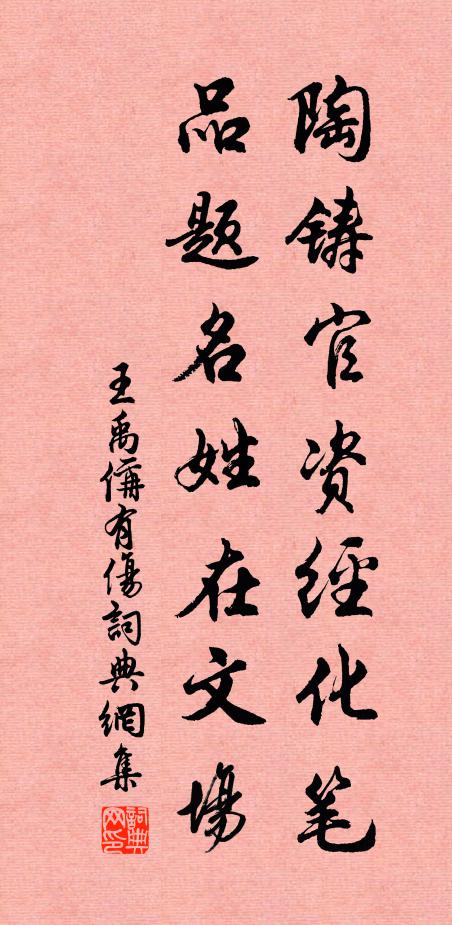 陶鑄官资經化笔
品题名姓在文場
王禹偁有傷詞典網集
詞典网印